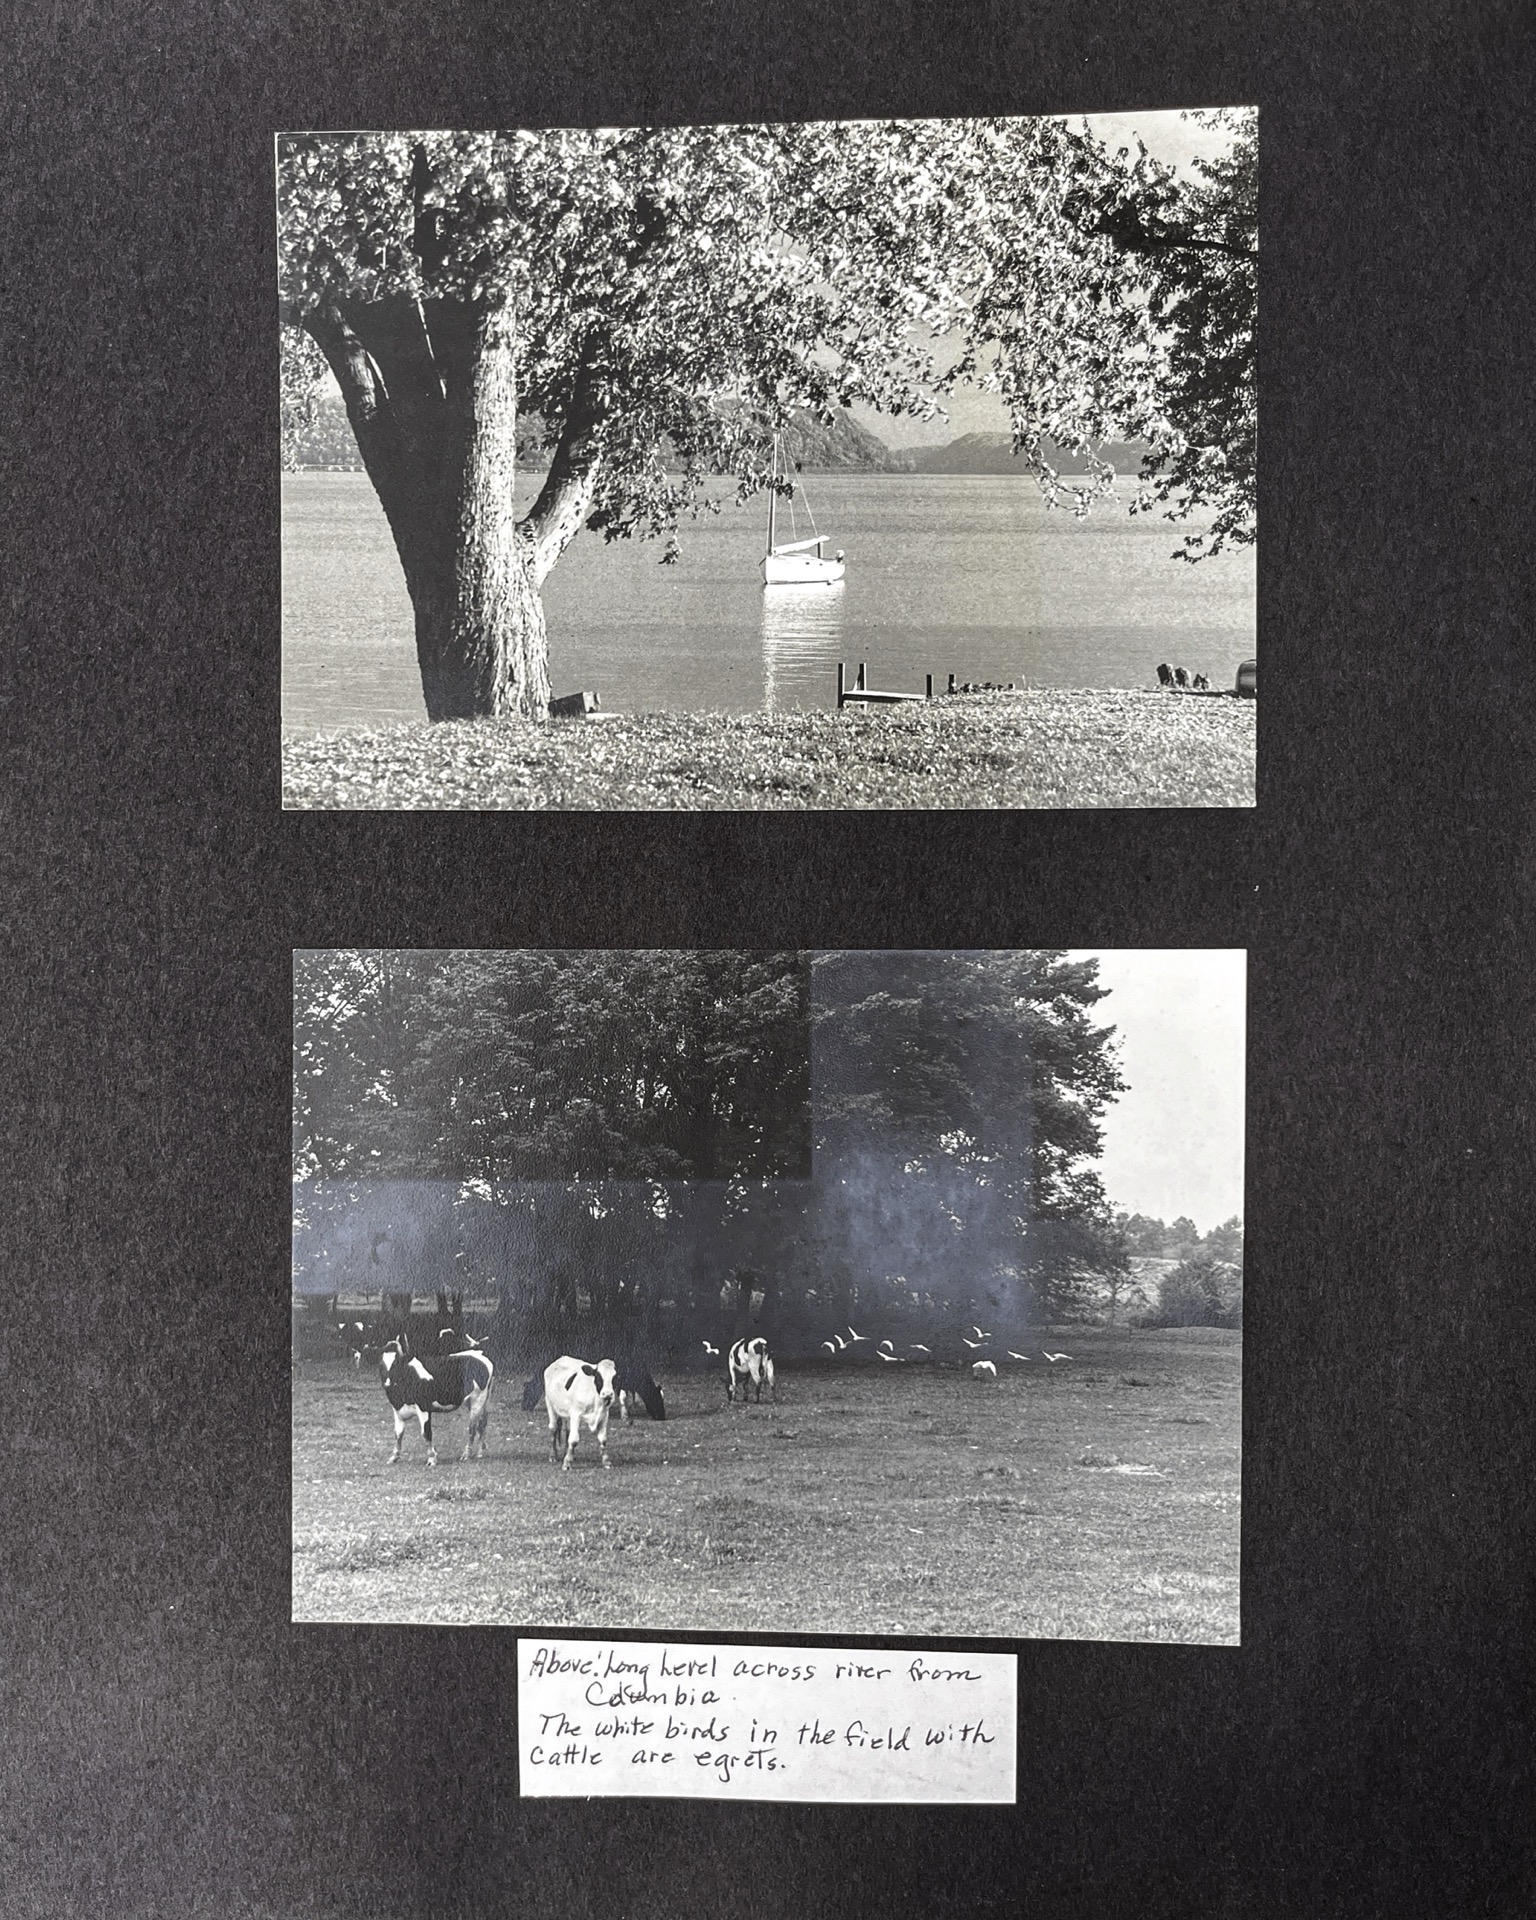 Above: Long Level across river from
Columbia.
The white birds in the field with
Cattle are egrets.